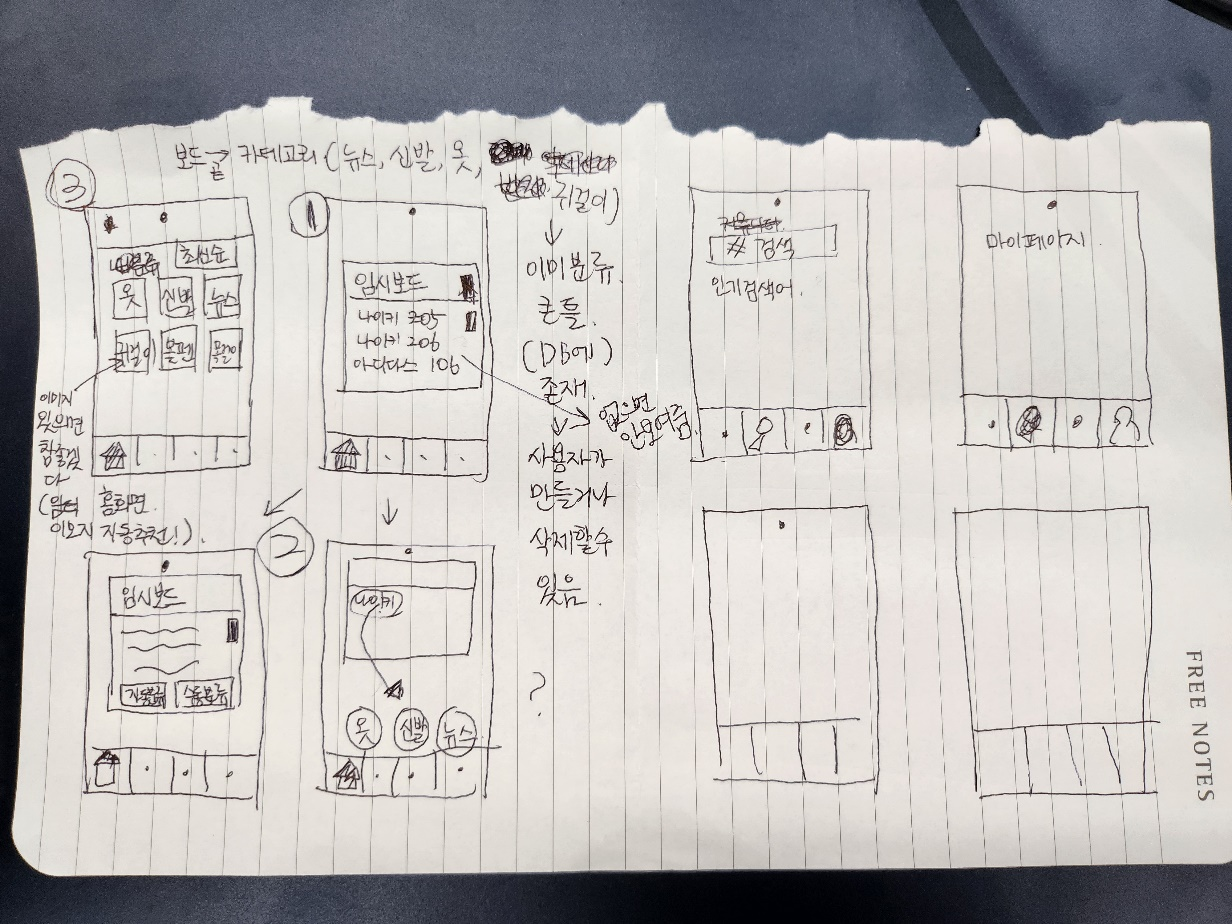 보드 곧 카테고리 (뉴스, 신발, 옷,
귀걸이)
이미 분류.
큰 틀.
(DB에)
존재.
사용자가
만들거나
삭제할수
있음.
?
③
최신순
옷 신발 뉴스
귀걸이 볼펜 목걸이
이미지
있으면
참좋겠
다
홈화면.
이모지 자동추천!).
①
임시보드
나이키 205
나이키 206
아디다스 106
없으면
안보여줌.
②
임시보드
자동분류 수동분류
나이키
옷 신발 뉴스
# 검색
인기검색어.
마이페이지.
FREE NOTES